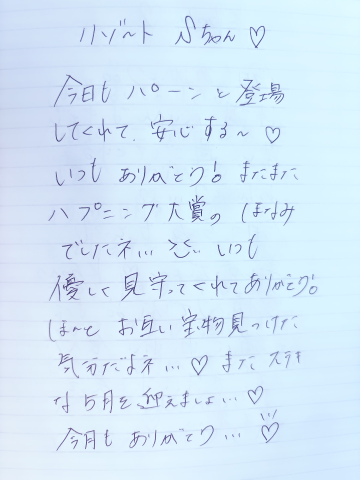 リゾート Sちゃん♡
今日も パーンと登場
してくれて、安心する〜♡
いつも ありがとう! またまた
ハプニング大賞の はなみ
でしたネ... いつも
優しく見守ってくれてありがとう!。
ほ〜んと お互い宝物見つけた
気分だよネ...♡ また ステキ
な5月を迎えましょ...♡
今月も ありがとう...♡